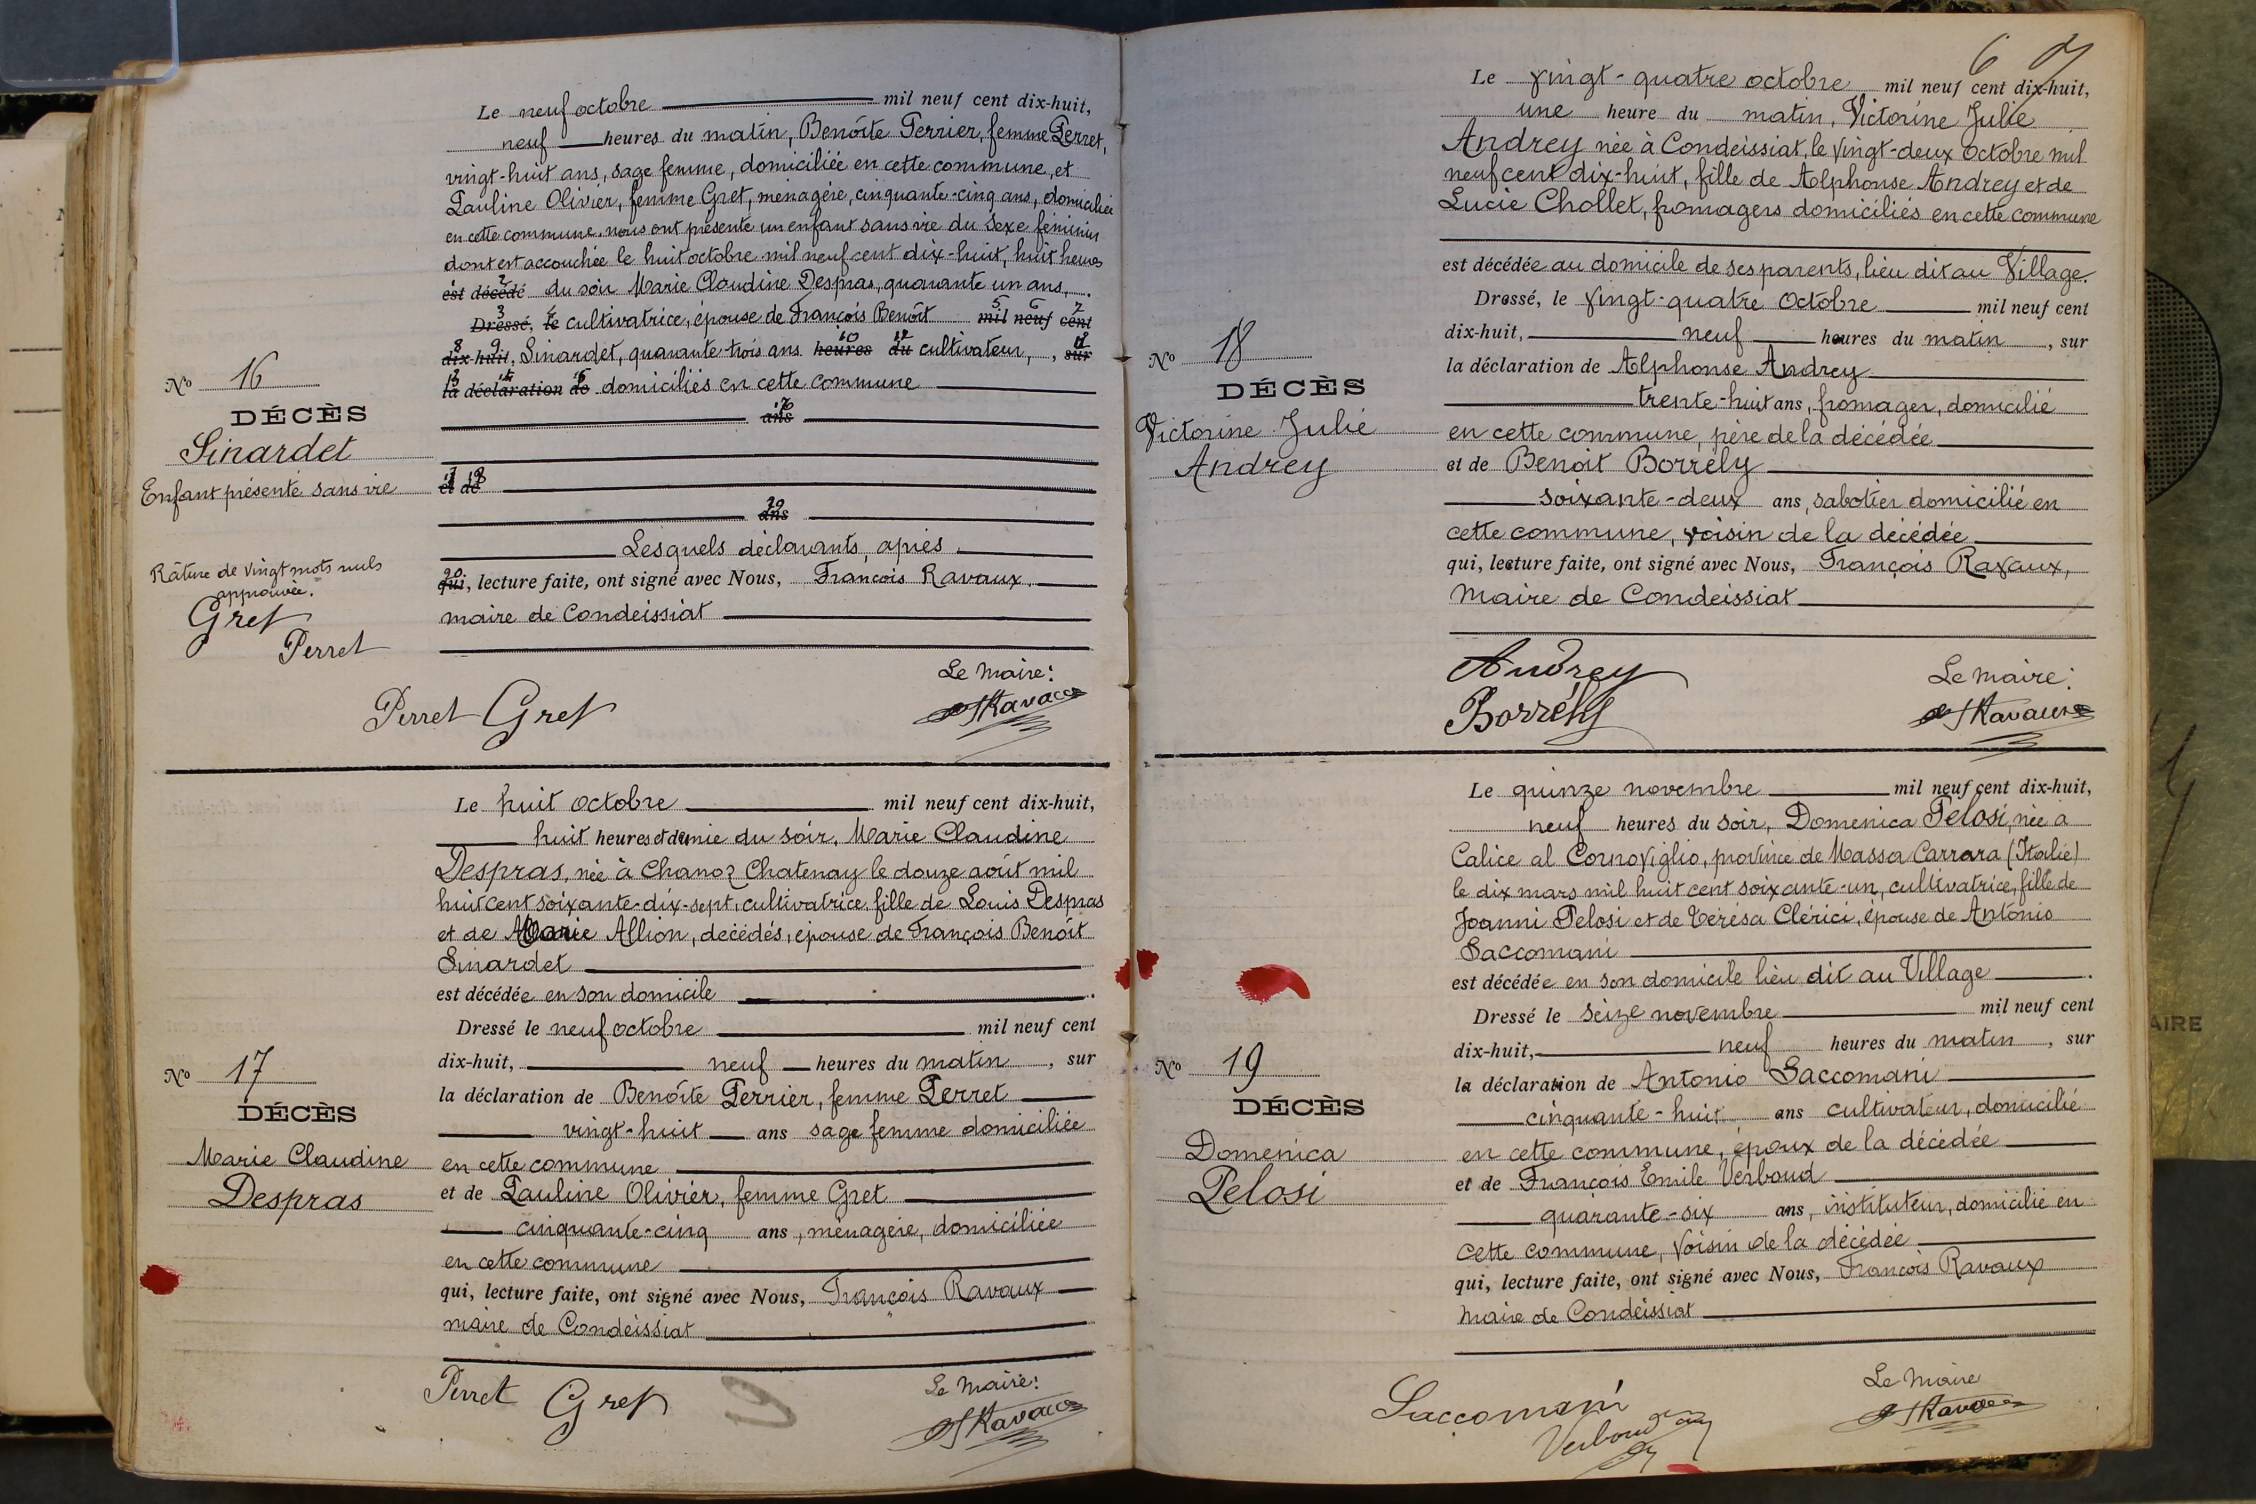 Le neuf octobre mil neuf cent dix-huit,
neuf heures du matin, Benoîte Perrier, femme Perret,
vingt-huit ans, sage femme, domiciliée en cette commune, et
Pauline Olivier, femme Gret, ménagère, cinquante-cinq ans, domiciliée
en cette commune, nous ont présenté un enfant sans vie du sexe féminin
dont est accouchée le huit octobre mil neuf cent dix-huit, huit heures
est décédé du soir Marie Claudine Despras, quarante un ans,
Dressé, le cultivatrice, épouse de François Benoît mil neuf cent
dix-huit, Sinardet, quarante-trois ans heures du cultivateur, , sur
la déclaration de domiciliés en cette commune
ans
et de
ans
Lesquels déclarants, après
qui, lecture faite, ont signé avec Nous, François Ravaux
maire de Condeissiat
No 16
DÉCÈS
Sinardet
Enfant présenté sans vie
Râture de vingt mots nuls
approuvée.
Gret
Perret
Le Maire:
Perret Gret Ravaux
Le huit octobre mil neuf cent dix-huit,
huit heures et demie du soir, Marie Claudine
Despras, née à Chanoz Chatenay le douze août mil
huit cent soixante-dix-sept, cultivatrice, fille de Louis Despras
et de Marie Allion, décédés, épouse de François Benoît
Sinardet
est décédée en son domicile
Dressé le neuf octobre mil neuf cent
dix-huit, neuf heures du matin, sur
la déclaration de Benoîte Perrier, femme Perret
vingt-huit ans sage femme domiciliée
en cette commune
et de Pauline Olivier, femme Gret
cinquante-cinq ans, ménagère, domiciliée
en cette commune
qui, lecture faite, ont signé avec Nous, François Ravaux
maire de Condeissiat
No 17
DÉCÈS
Marie Claudine
Despras
Le Maire:
Perret Gret Ravaux
6
Le vingt-quatre octobre mil neuf cent dix-huit,
une heure du matin, Victorine Julie
Andrey née à Condeissiat, le vingt-deux octobre mil
neuf cent dix-huit, fille de Alphonse Andrey et de
Lucie Chollet, fromagers domiciliés en cette commune
est décédée au domicile de ses parents, lieu dit au Village.
Dressé, le vingt-quatre Octobre mil neuf cent
dix-huit, neuf heures du matin, sur
la déclaration de Alphonse Andrey
trente-huit ans, fromager, domicilié
en cette commune, père de la décédée
et de Benoit Borrély
soixante-deux ans, sabotier domicilié en
cette commune, voisin de la décédée
qui, lecture faite, ont signé avec Nous, François Ravaux,
Maire de Condeissiat
No 18
DÉCÈS
Victorine Julie
Andrey
Andrey
Borrély
Le Maire:
Ravaux
Le quinze novembre mil neuf cent dix-huit,
neuf heures du soir, Domenica Pelosi, née à
Calice al Cornoviglio, province de Massa Carrara (Italie)
le dix mars mil huit cent soixante-un, cultivatrice, fille de
Joanni Pelosi et de Térésa Clérici, épouse de Antonio
Saccomani
est décédée en son domicile lieu dit au Village
Dressé le seize novembre mil neuf cent
dix-huit, neuf heures du matin, sur
la déclaration de Antonio Saccomani
cinquante-huit ans cultivateur, domicilié
en cette commune, époux de la décédée
et de François Emile Verboud
quarante-six ans, instituteur, domicilié en
cette commune, voisin de la décédée
qui, lecture faite, ont signé avec Nous, François Ravaux
Maire de Condeissiat
No 19
DÉCÈS
Domenica
Pelosi
Le Maire
Saccomani
Verboud
Ravaux
AIRE